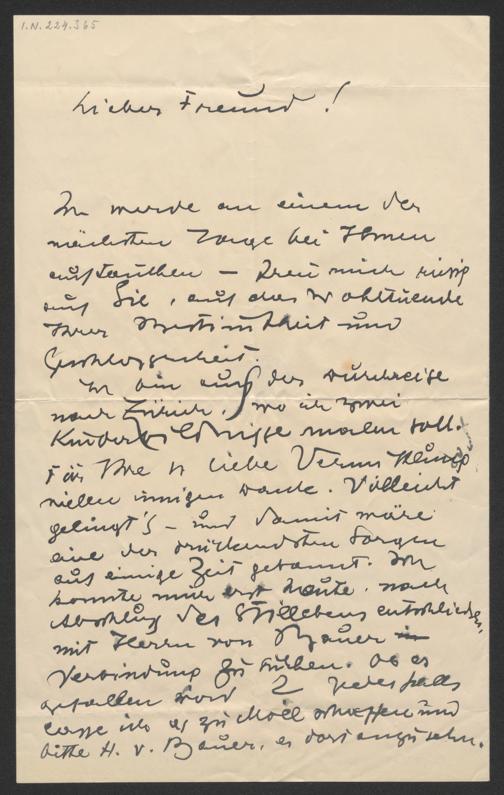 I.N. 224.365
Lieber Freund!
Ich werde an einem der
nächsten Tage bei Ihnen
auftauchen – freu mich riesig
auf Sie, auf das Wohltuende
Ihrer Bestimmtheit und
Geschlossenheit.
Ich bin auf der Durchreise
nach Zürich, wo ich zwei
Kinderbildnisse malen soll.
Für Ihre liebe Vermittlung
vielen innigen Dank. Vielleicht
gelingt's – und damit wäre
eine der drückendsten Sorgen
auf einige Zeit gebannt. Ich
konnte mich erst heute, nach
Abschluß des Stillebens entschließen,
mit Herrn von Bauer in
Verbindung zu treten. Ob es
gefallen wird? Jedesfalls
lasse ich es zu Moll schaffen und
bitte H. v. Bauer, es dort anzusehn.